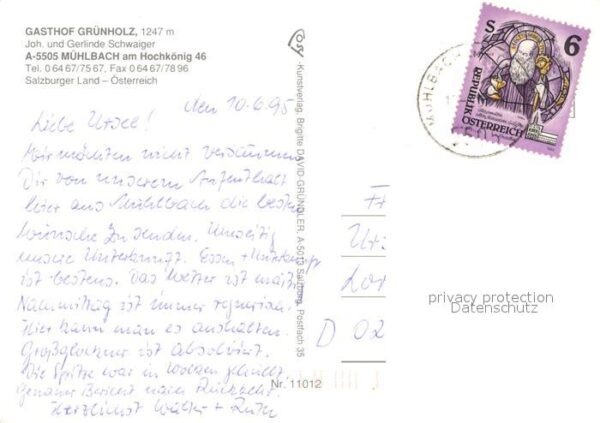 GASTHOF GRÜNHOLZ, 1247 m
Joh. und Gerlinde Schwaiger
A-5505 MÜHLBACH am Hochkönig 46
Tel. 0 64 67/75 67, Fax 0 64 67/78 96
Salzburger Land – Österreich
den 10.6.95
Liebe Ursel!
Wir möchten nicht versäumen
Dir von unserem Aufenthalt
hier aus Mühlbach die besten
Wünsche zu senden.
unsere Unterkunft. Essen + Unterkunft
ist bestens. Das Wetter ist meist
Nachmittag ist immer regnerisch.
Hier kann man es aushalten.
Großglockner ist absolviert.
Die Spitze war in Wolken gehüllt.
Genauer Bericht nach Rückkehr.
Herzlichst Walter + Ruth
Kunstverlag, Brigitte DAVID-GRÜNDLER, A-5013 Salzburg, Postfach 35
Nr. 11012
S 6
REPUBLIK
ÖSTERREICH
D 02
privacy protection
Datenschutz